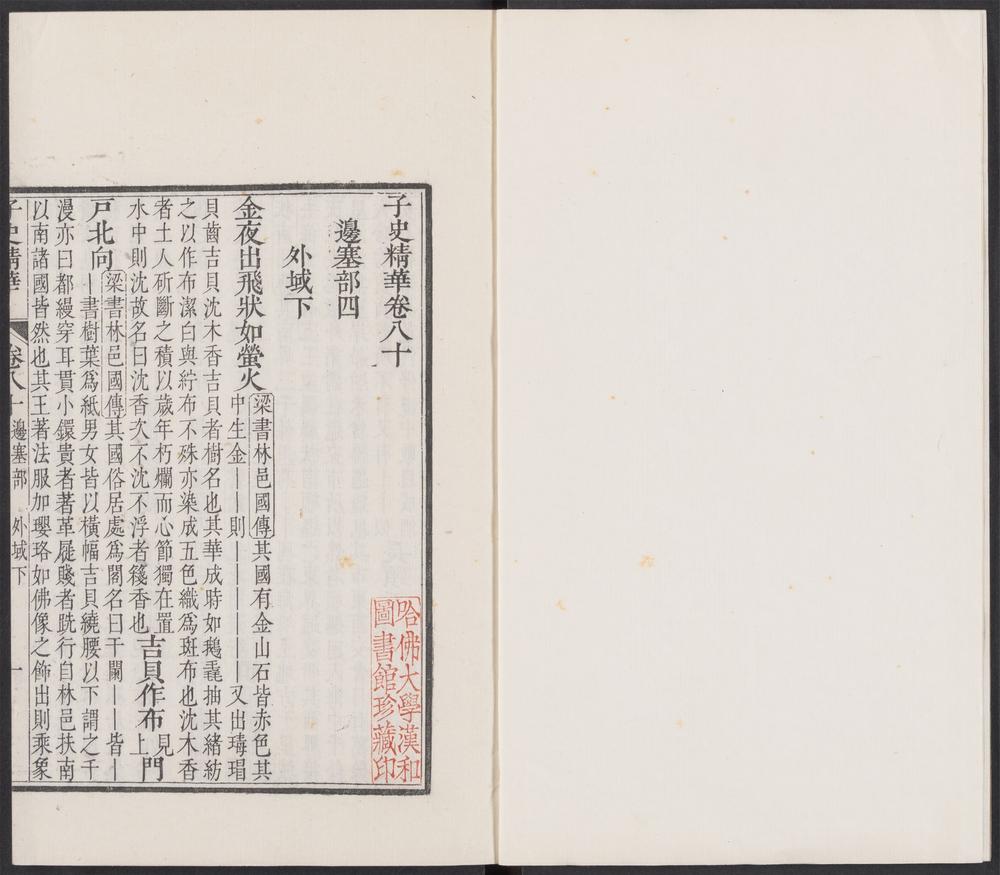 子史精華卷八十
邊塞部四
外域下
金夜出飛狀如螢火梁書林邑國傳其國有金山石皆赤色其
中生金｜則｜｜｜｜｜｜又出瑇瑁
貝齒吉貝沈木香吉貝者樹名也其華成時如鵝毳抽其緒紡
之以作布潔白與紵布不殊亦染成五色織爲斑布也沈木香
者土人斫斷之積以歲年朽爛而心節獨在置
水中則沈故名曰沈香次不沈不浮者䉤香也吉貝作布見上門
戶北向梁書林邑國傳其國俗居處爲閣名曰干闌｜｜皆｜
｜書樹葉爲紙男女皆以橫幅吉貝繞腰以下謂之干
漫亦曰都縵穿耳貫小鐶貴者著革屣賤者跣行自林邑扶南
以南諸國皆然也其王著法服加瓔珞如佛像之飾出則乘象
子史精華 卷八十 邊塞部 外域下 一
哈佛大學漢和
圖書館珍藏印